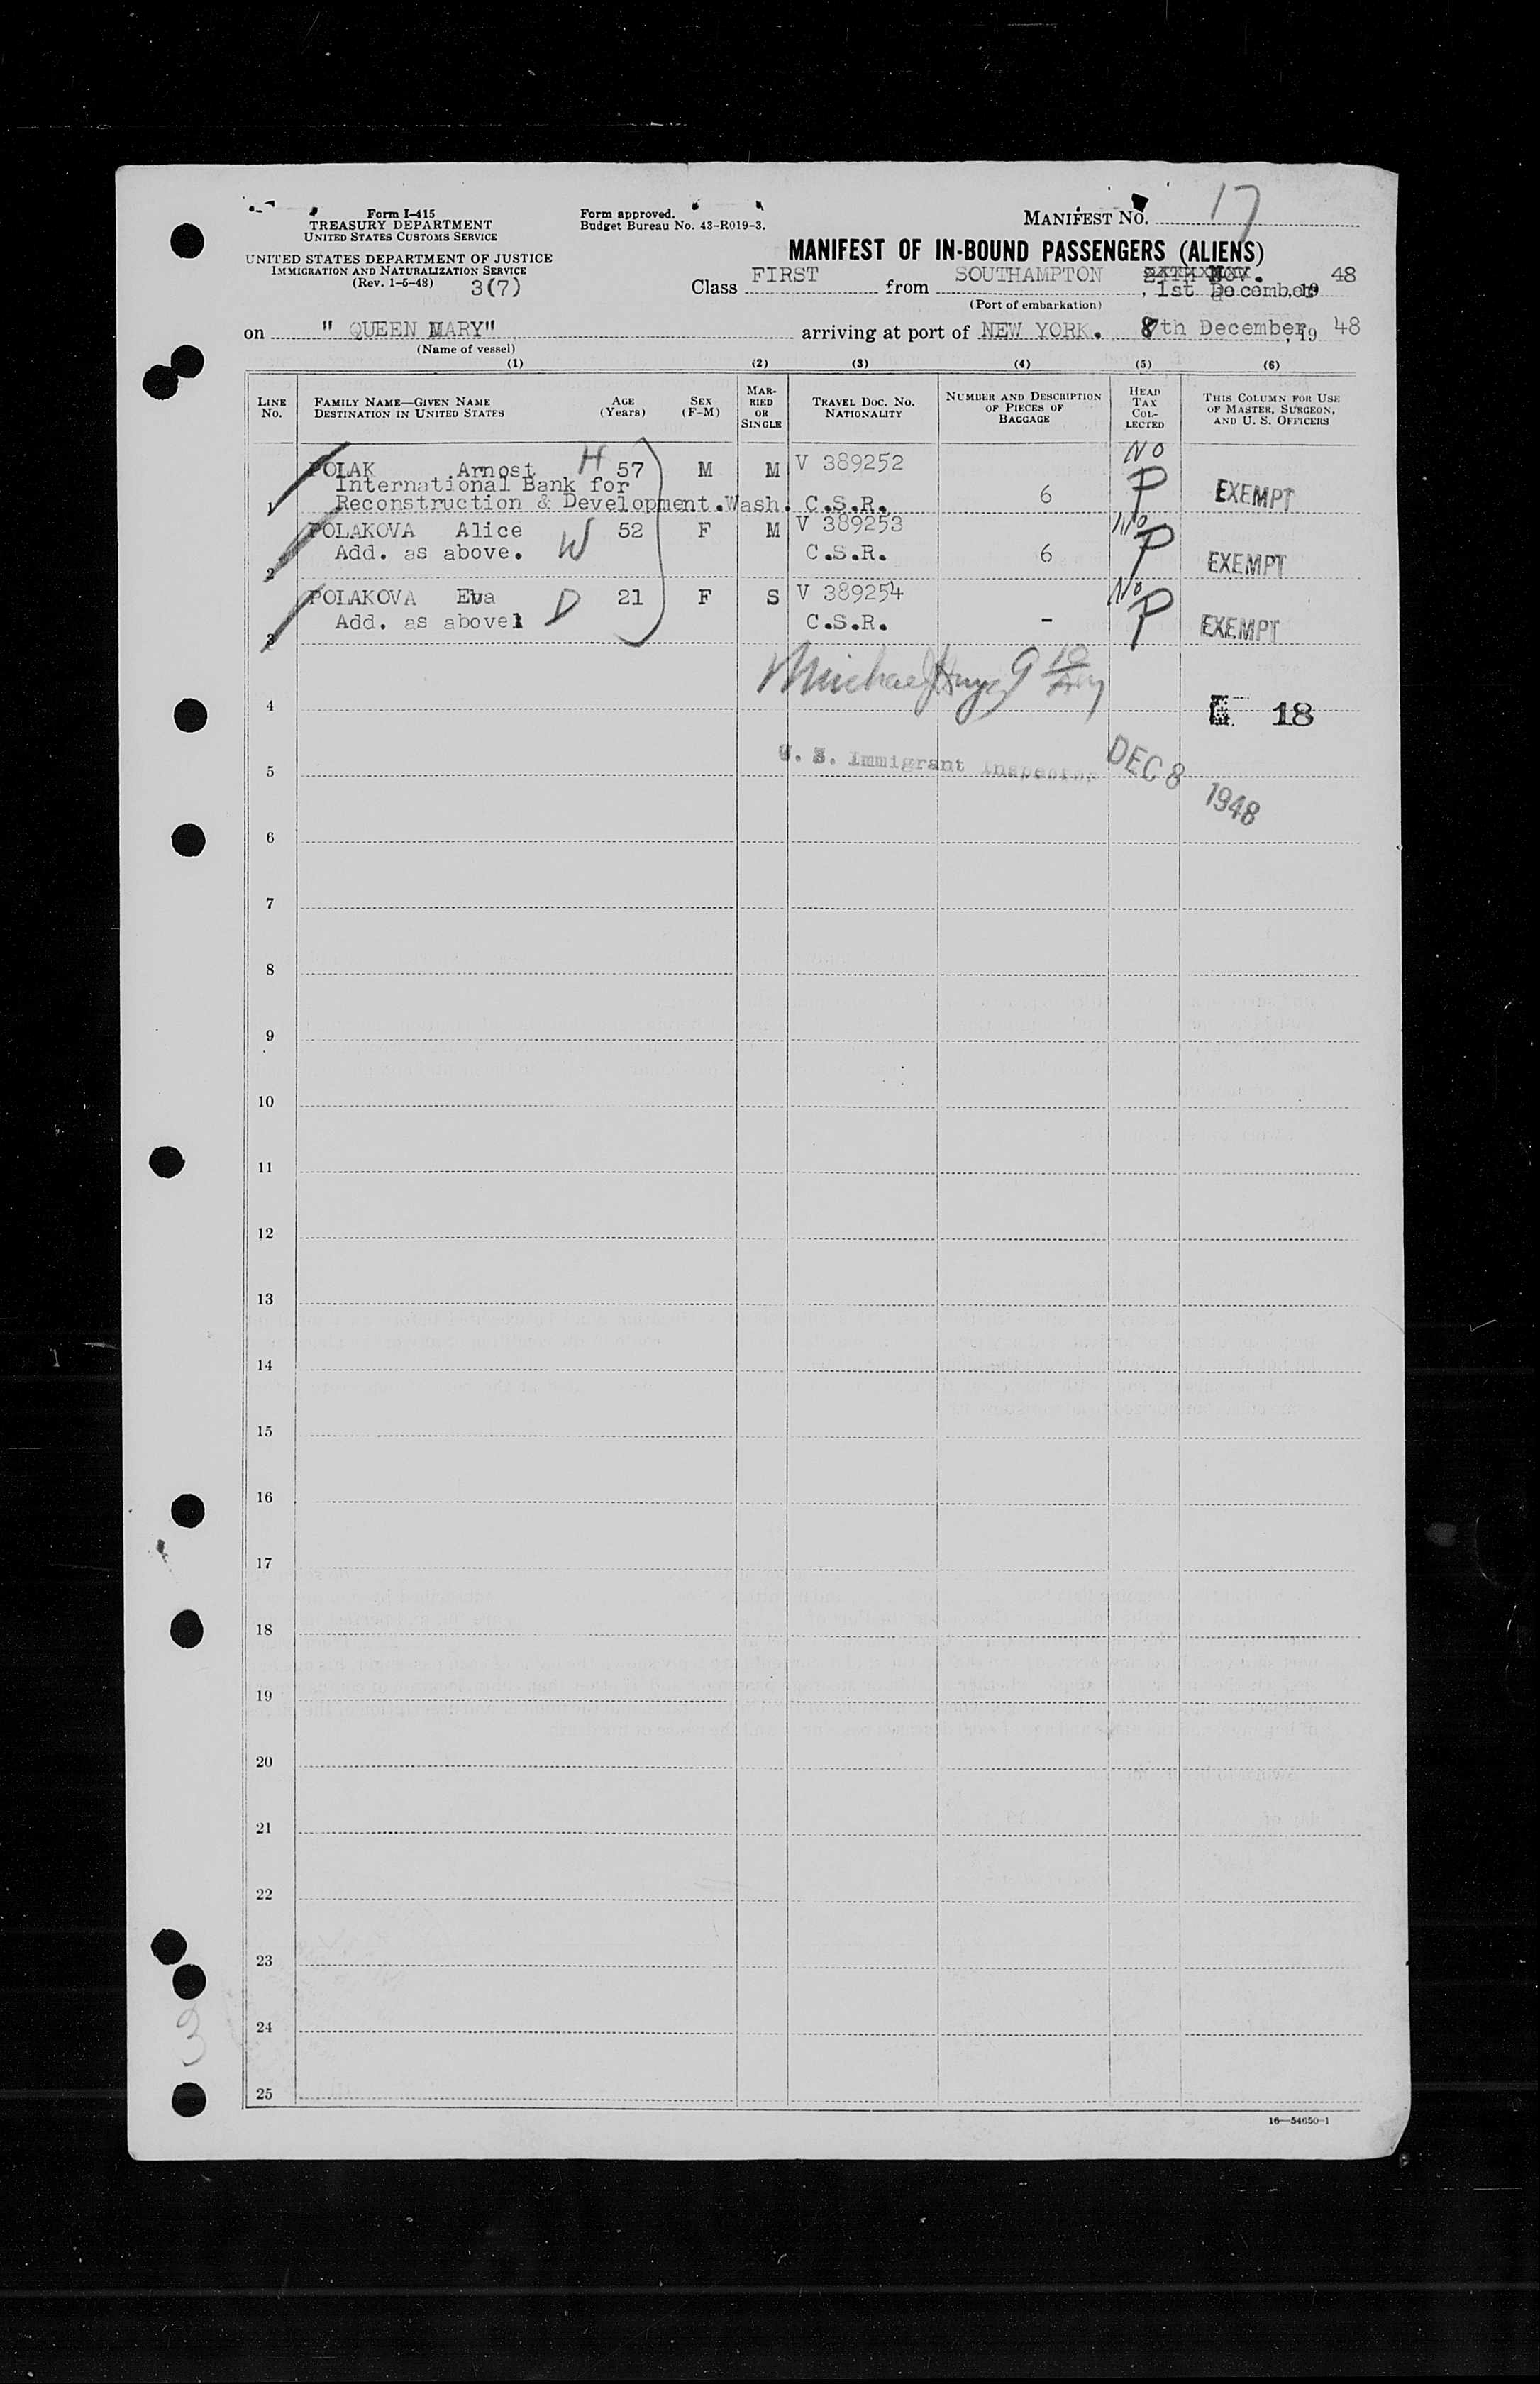 Form I-415
TREASURY DEPARTMENT
UNITED STATES CUSTOMS SERVICE
UNITED STATES DEPARTMENT OF JUSTICE
IMMIGRATION AND NATURALIZATION SERVICE
(Rev. 1-5-48) 3(7)
Form approved.
Budget Bureau No. 43-R019-3.
MANIFEST NO. 17
MANIFEST OF IN-BOUND PASSENGERS (ALIENS)
Class FIRST from SOUTHAMPTON , 1st December, 19 48
(Port of embarkation)
on " QUEEN MARY" arriving at port of NEW YORK. 8th December, 19 48
(Name of vessel)
(1) (2) (3) (4) (5) (6)
LINE NO. FAMILY NAME—GIVEN NAME DESTINATION IN UNITED STATES AGE (Years) SEX (F-M) MARRIED OR SINGLE TRAVEL DOC. NO. NATIONALITY NUMBER AND DESCRIPTION OF PIECES OF BAGGAGE HEAD TAX COLLECTED THIS COLUMN FOR USE OF MASTER, SURGEON, AND U. S. OFFICERS
POLAK Arnost H 57 M M V 389252 NO
International Bank for
1 Reconstruction & Development.Wash. C.S.R. 6 P EXEMPT
POLAKOVA Alice W 52 F M V 389253 No
2 Add. as above. C.S.R. 6 P EXEMPT
POLAKOVA Eva D 21 F S V 389254 No
3 Add. as above C.S.R. - P EXEMPT
Michael
4 18
5 U. S. Immigrant Inspector DEC 8 1948
6
7
8
9
10
11
12
13
14
15
16
17
18
19
20
21
22
23
24
25
3
16—54650-1